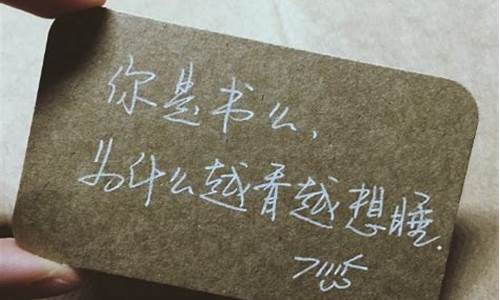 你是书么、
为什么越看越想睡.